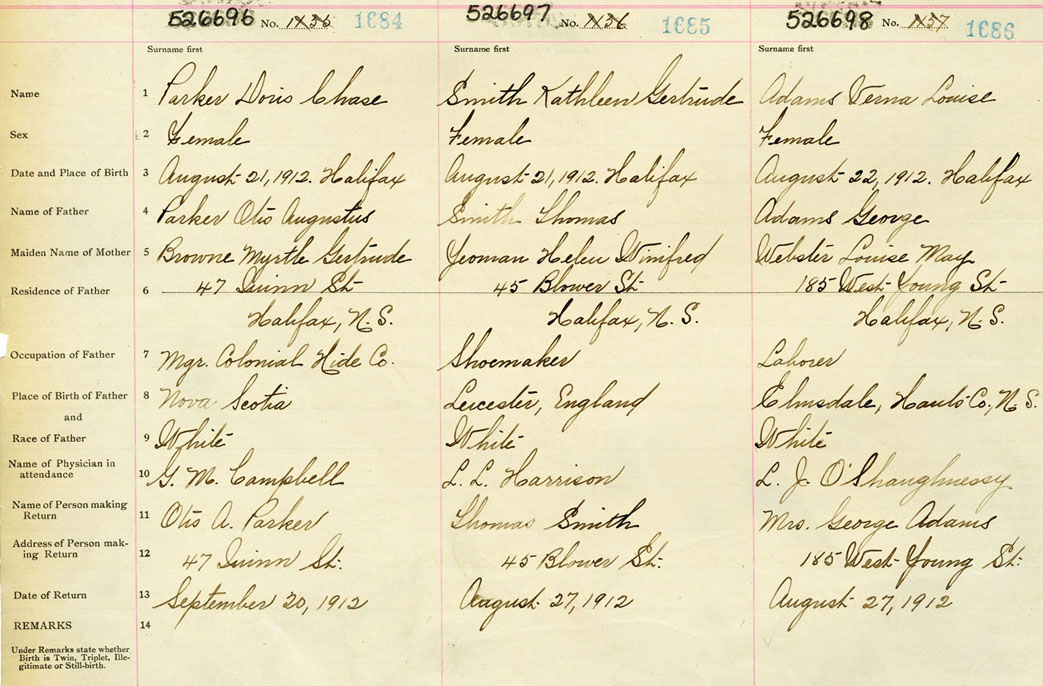 526696 No. 1684 526697 No. 1685 526698 No. 1686
Surname first Surname first Surname first
Name 1 Parker Doris Chase Smith Kathleen Gertrude Adams Verna Louise
Sex 2 Female Female Female
Date and Place of Birth 3 August 21, 1912. Halifax August 21, 1912. Halifax August 22, 1912. Halifax
Name of Father 4 Parker Otis Augustus Smith Thomas Adams George
Maiden Name of Mother 5 Browne Myrtle Gertrude Yeoman Helen Winifred Webster Louise May
Residence of Father 6 47 Quinn St 45 Blower St 185 West Young St
Halifax, N.S. Halifax, N.S. Halifax, N.S.
Occupation of Father 7 Mgr. Colonial Hide Co. Shoemaker Laborer
Place of Birth of Father 8 Nova Scotia Leicester, England Elmsdale, Hants Co., N.S.
and
Race of Father 9 White White White
Name of Physician in
attendance 10 G. M. Campbell L. L. Harrison L. J. O'Shaughnessy
Name of Person making
Return 11 Otis A. Parker Thomas Smith Mrs. George Adams
Address of Person mak-
ing Return 12 47 Quinn St. 45 Blower St. 185 West Young St.
Date of Return 13 September 20, 1912 August 27, 1912 August 27, 1912
REMARKS 14
Under Remarks state whether
Birth is Twin, Triplet, Ille-
gitimate or Still-birth.